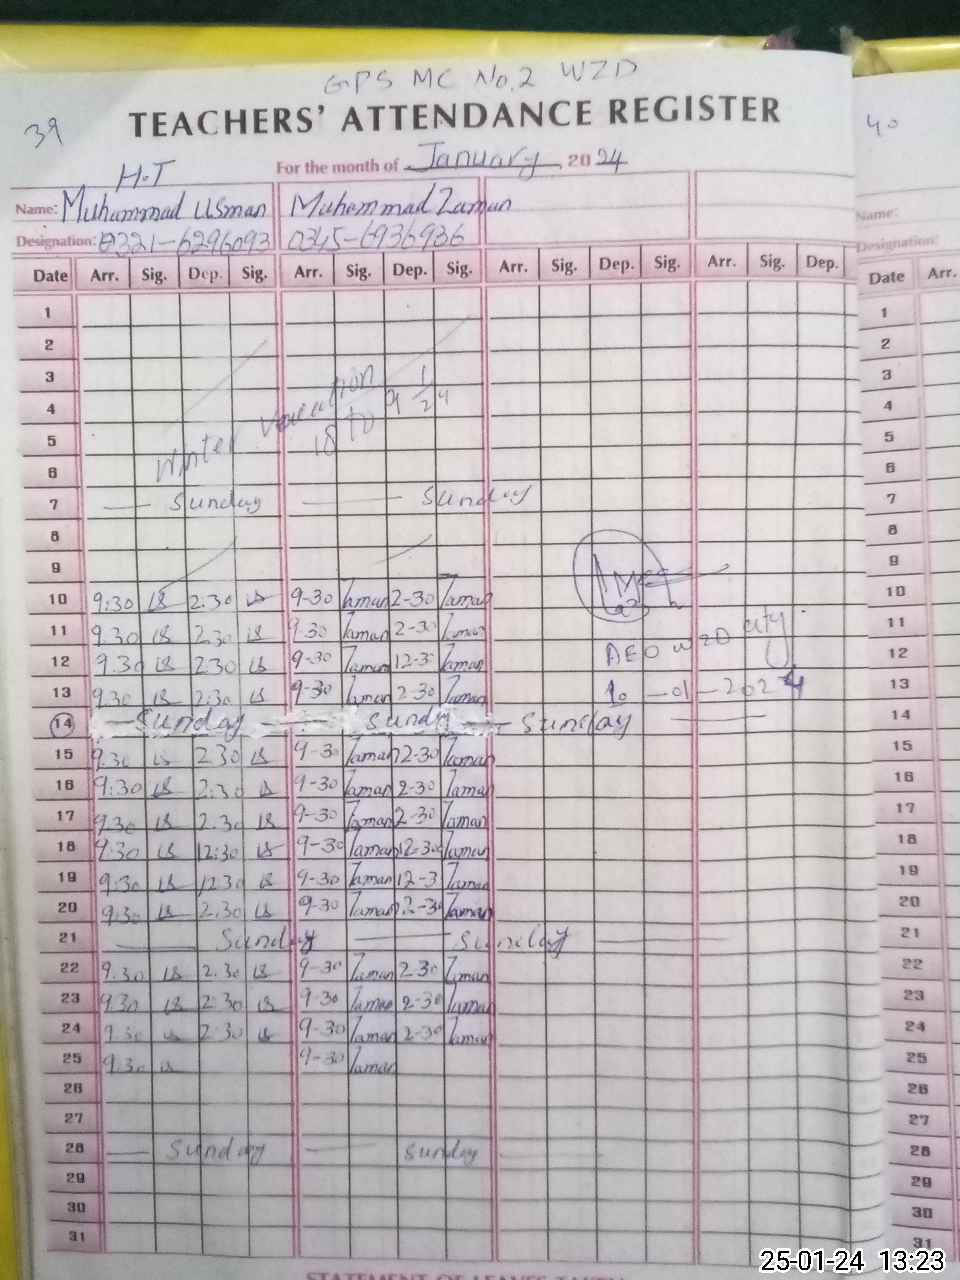 GPS MC No.2 WZD
39
TEACHERS' ATTENDANCE REGISTER
40
For the month of January 2024
H.T
Name: Muhammad Usman Muhammad Zaman
Name:
Designation: 0321-6296093 0345-6936936
Designation:
Date Arr. Sig. Dep. Sig. Arr. Sig. Dep. Sig. Arr. Sig. Dep. Sig. Arr. Sig. Dep. Date Arr.
1 1
2 2
3 3
4 4
5 5
6 6
Winter vacation
18 to 9 1/24
7 Sunday Sunday 7
8 8
9 9
10 9:30 2:30 9-30 Zaman 2-30 Zaman 10
11 9.30 2.30 9-30 Zaman 2-30 Zaman 11
12 9.30 2.30 9-30 Zaman 12-30 Zaman AEO WZD City 12
13 9.30 2:30 9-30 Zaman 2-30 Zaman 10-01-2024 13
14 Sunday Sunday Sunday 14
15 9.30 2.30 9-30 Zaman 2-30 Zaman 15
16 9:30 2:30 9-30 Zaman 2-30 Zaman 16
17 9.30 2.30 9-30 Zaman 2-30 Zaman 17
18 9:30 12:30 9-30 Zaman 12-30 Zaman 18
19 9:30 12.30 9-30 Zaman 12-3 Zaman 19
20 9:30 2.30 9-30 Zaman 2-30 Zaman 20
21 Sunday Sunday 21
22 9.30 2.30 9-30 Zaman 2-30 Zaman 22
23 9.30 2:30 9-30 Zaman 2-30 Zaman 23
24 9.30 2:30 9-30 Zaman 2-30 Zaman 24
25 9.30 9-30 Zaman 25
26 26
27 27
28 Sunday Sunday 28
29 29
30 30
31 31
25-01-24 13:23